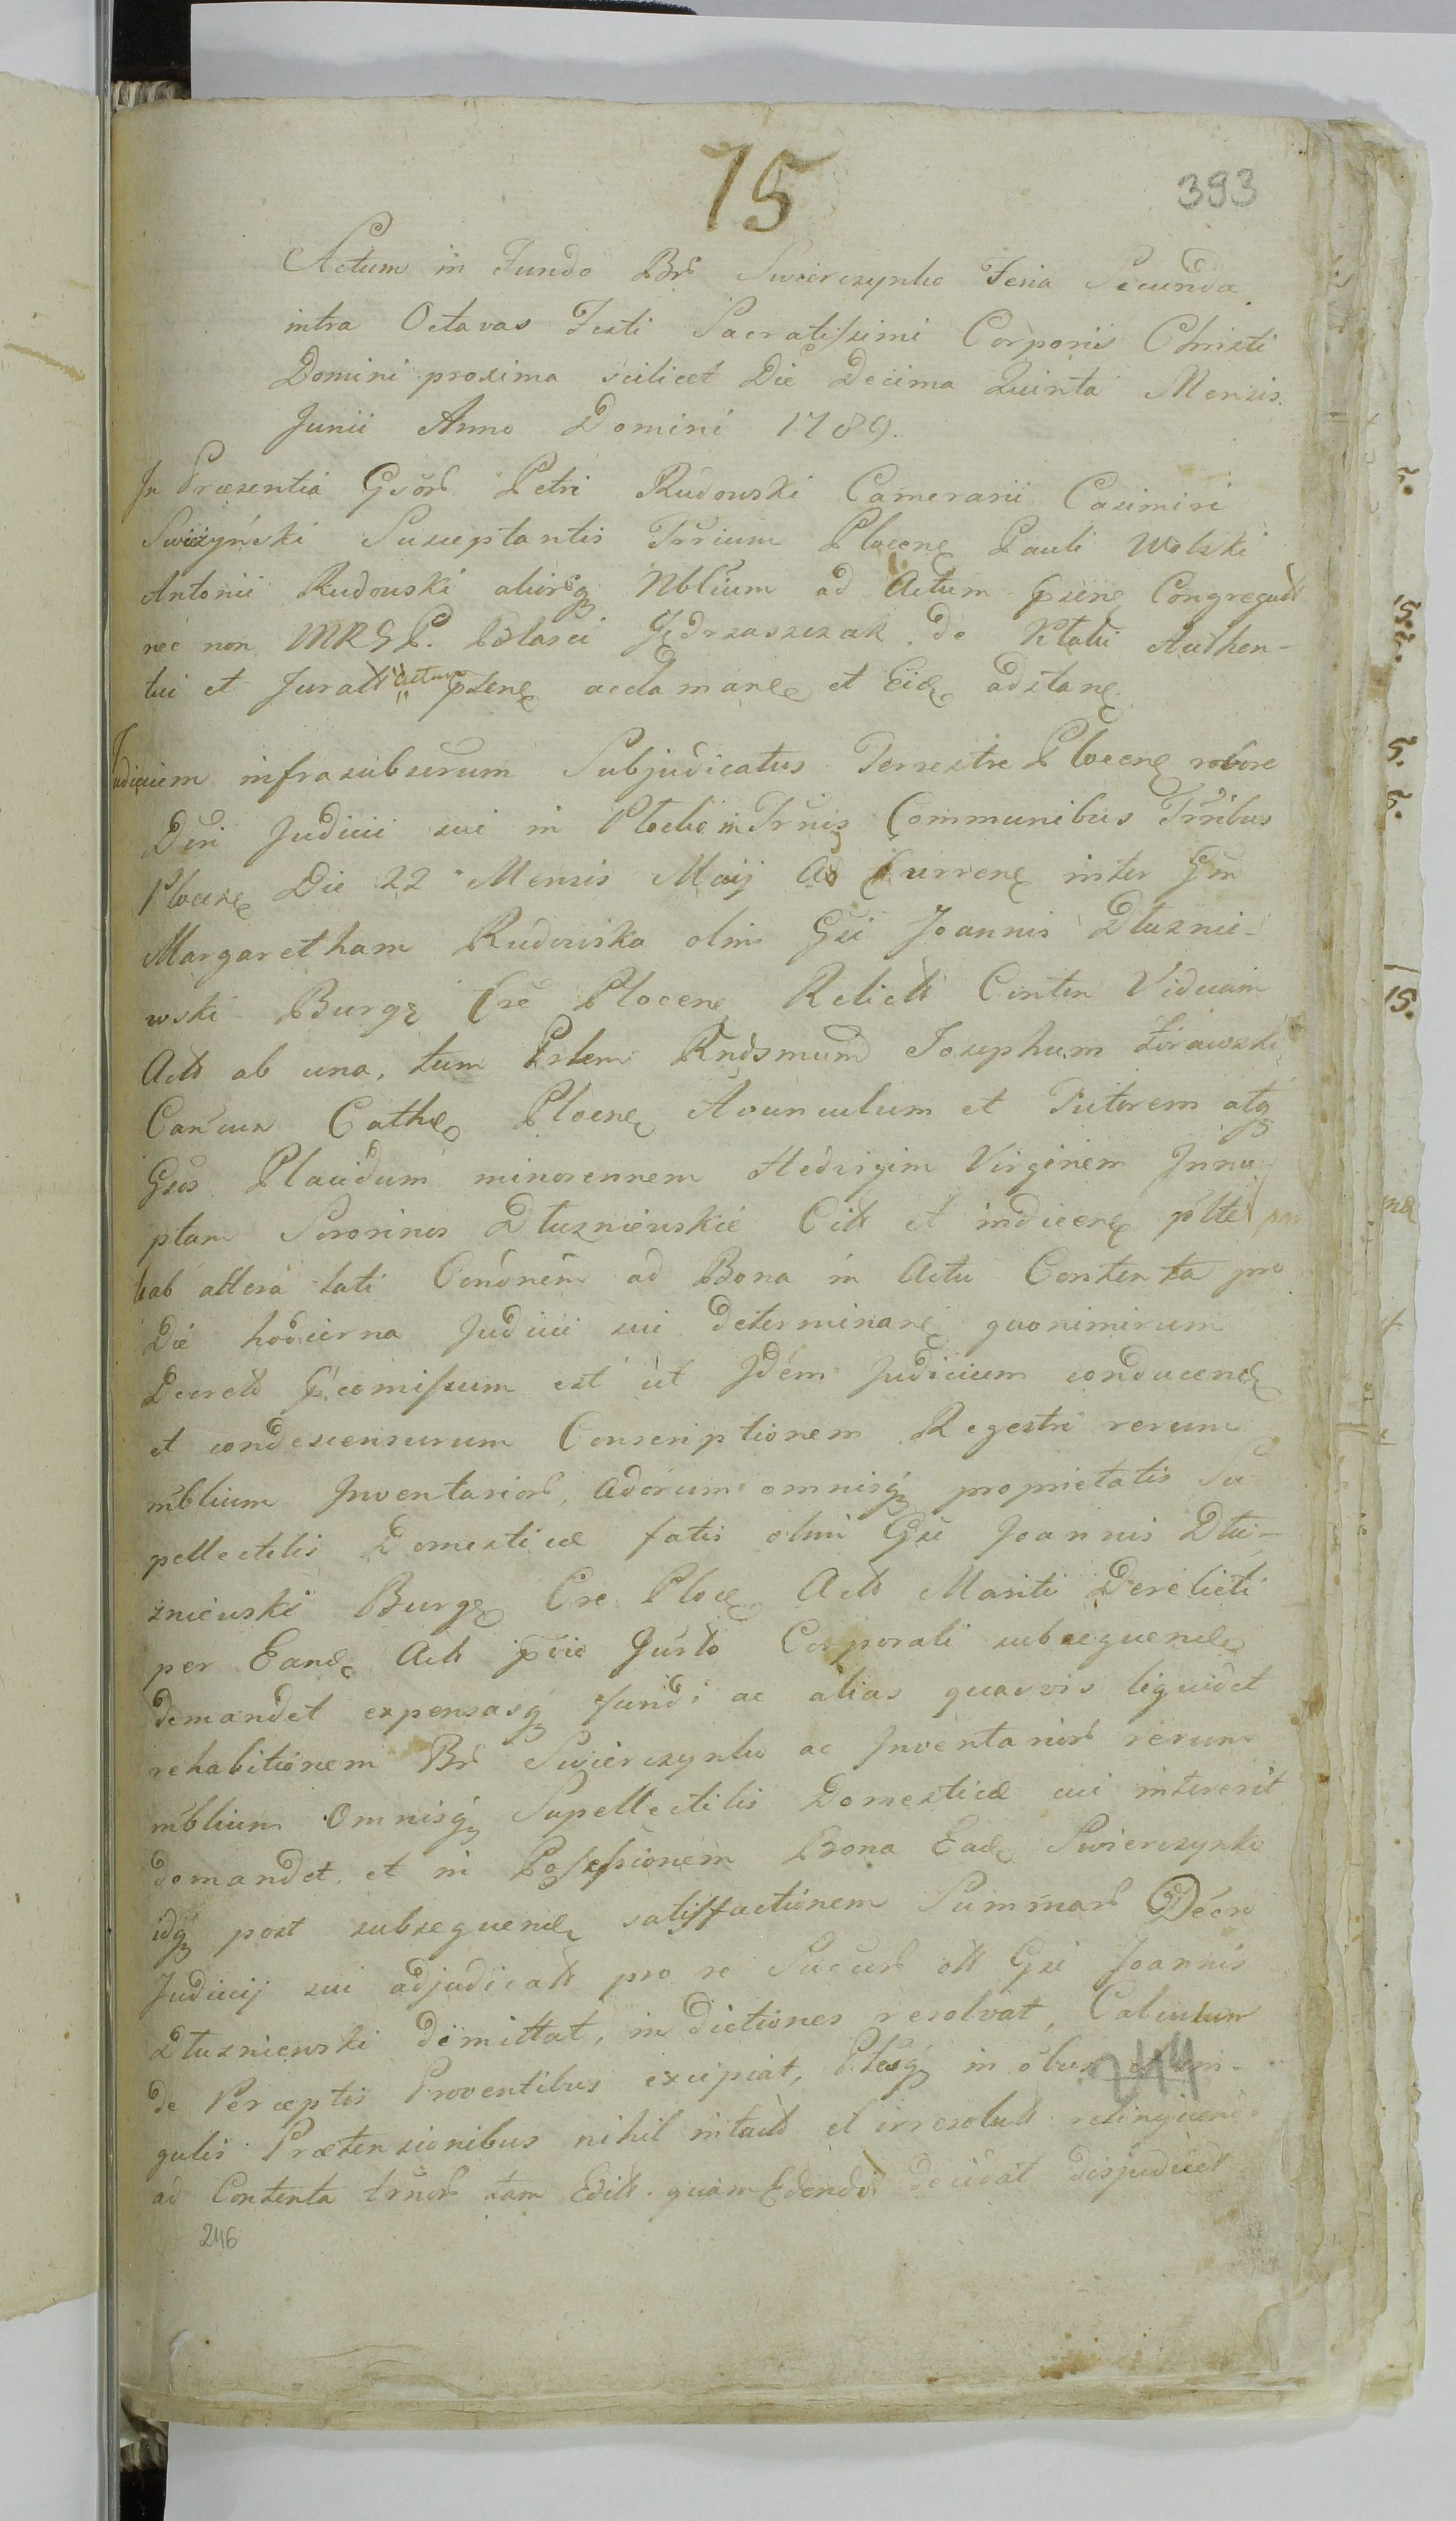 15
393
Actum in Fundo Br Swierczynko Feria Secunda
intra Octavas Festi Sacratissimi Corporis Christi
Domini proxima scilicet Die Decima Quinta Mensis
Junii Anno Domini 1789.
In Præsentia Gsor Petri Rudowski Camerarii Casimiri
Susceptantis Trrium Plocen Pauli Wolski
Antonii Rudowski aliorq Nblium ad Actum psene Congregatt
nec non MRGP. Blasei Jędrzaszczak de Authen-
tici et Juratt actum psene acclamane et Eid adstane
Judicium infrasubscrum Subjudicatus Terrestre Plocen robore
Dcri Judicii sui in Plocko in Trnis Communibus Trribus
Plocen Die 22 Mensis Maij Ao Currene inter Gsm
Margaretham Rudowska olim Gsi Joannis Dłuznie-
wski Burg Cre Plocen Relictt Conten Viduam
Actt ab una, tum Josephum Zórawski
Cathe Plocen Avunculum et Tutorem atq
Gsos Placidum minorennem Hedvigim Virginem Innu
ptam Sororinos Dłuzniewskie Citt et indicene
ab altera lati ad Bona in Actu Contenta pro
Die hodierna Judicii sui determinane quonimirum
Decreto est ut Idem Judicium conducend
et condescensurum Conscriptionem Regestri rerum
mblium Inventarior, Ador omnisq proprietatis Su
pellectilis Domesticæ fatis olim Gsi Joannis Dłu-
zniewski Burg Cre Ploce Actt Mariti Derelicti
per Eand Actt pvio Jurto Corporali subsequende
demandet expensasq fundi ac alias quasvis liquidet
rehabitionem Br Swierczynko ac Inventarior rerum
mblium Omnisq Supellectilis Domesticæ cui intererit
demandet, et in Possessionem Bona Ead Swierczynko
idq post subsequend satisfactionem Summar Décro
Judicij sui adjudicatt pro re Sucesr ott Gsi Joannis
Dłuzniewski dimittat, indictiones resolvat, Calculum
de Perceptis Proventibus excipiat, in
gulis Prætensionibus nihil intactt et irresolutt relinquend
ad Contenta trnor tam Editt quam Edendr decidat disjudicet
244
246